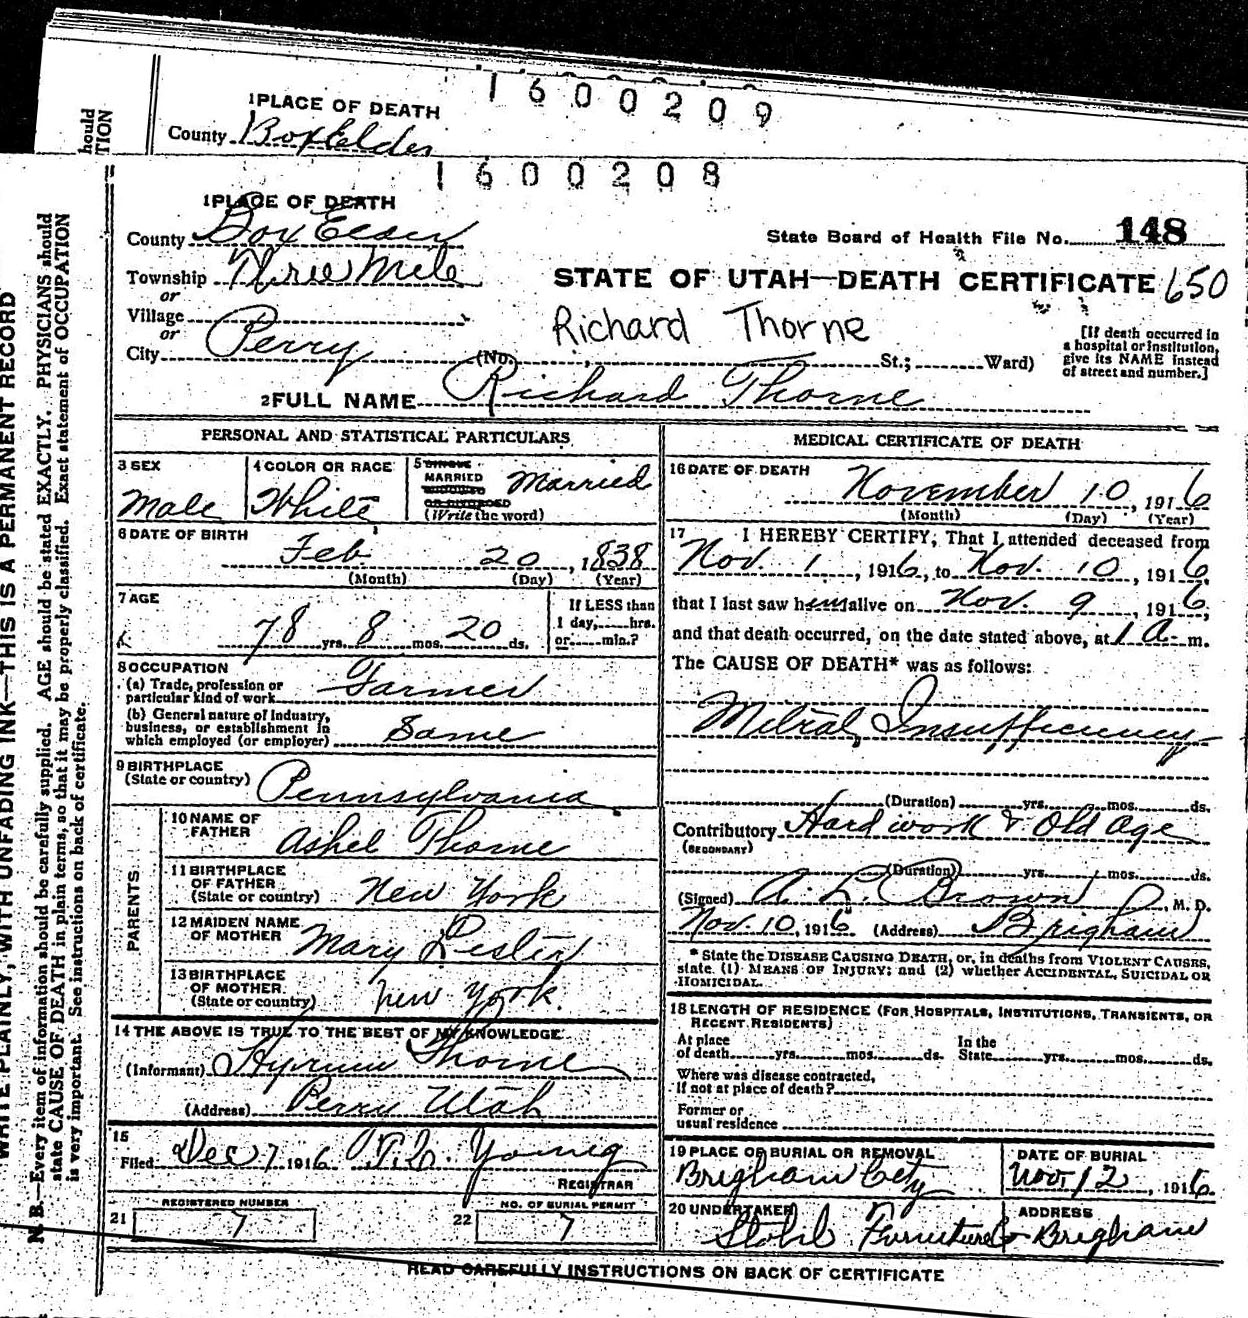 1600209
1 PLACE OF DEATH
County Box Elder
hould
TION
1600208
1 PLACE OF DEATH
County Box Elder
State Board of Health File No. 148
Township Three Mile
or
STATE OF UTAH—DEATH CERTIFICATE 650
Village
or
Richard Thorne
City Perry (No. St.; Ward)
[If death occurred in
a hospital or institution,
give its NAME instead
of street and number.]
2 FULL NAME Richard Thorne
PERSONAL AND STATISTICAL PARTICULARS
3 SEX
Male
4 COLOR OR RACE
White
5 SINGLE
MARRIED
WIDOWED
OR DIVORCED
(Write the word)
Married
6 DATE OF BIRTH
Feb 20, 1838
(Month) (Day) (Year)
7 AGE
78 yrs. 8 mos. 20 ds.
If LESS than
1 day, hrs.
or min.?
8 OCCUPATION
(a) Trade, profession or
particular kind of work Farmer
(b) General nature of Industry,
business, or establishment in
which employed (or employer) Same
9 BIRTHPLACE
(State or country) Pennsylvania
PARENTS
10 NAME OF
FATHER Ashel Thorne
11 BIRTHPLACE
OF FATHER
(State or country) New York
12 MAIDEN NAME
OF MOTHER Mary Lester
13 BIRTHPLACE
OF MOTHER
(State or country) New York.
14 THE ABOVE IS TRUE TO THE BEST OF MY KNOWLEDGE
(Informant) Hyrum Thorne
(Address) Perry Utah
15
Filed Dec 7 1916 Young
REGISTRAR
REGISTERED NUMBER
21 7
NO. OF BURIAL PERMIT
22 7
MEDICAL CERTIFICATE OF DEATH
16 DATE OF DEATH
November 10, 1916
(Month) (Day) (Year)
17 I HEREBY CERTIFY, That I attended deceased from
Nov. 1, 1916, to Nov. 10, 1916,
that I last saw him alive on Nov. 9, 1916,
and that death occurred, on the date stated above, at 1 a. m.
The CAUSE OF DEATH* was as follows:
Mitral Insufficiency
(Duration) yrs. mos. ds.
Contributory Hard work & Old age
(SECONDARY)
(Duration) yrs. mos. ds.
(Signed) A. L. Brown, M. D.
Nov. 10, 1916 (Address) Brigham
* State the DISEASE CAUSING DEATH, or, in deaths from VIOLENT CAUSES,
state (1) MEANS OF INJURY; and (2) whether ACCIDENTAL, SUICIDAL OR
HOMICIDAL.
18 LENGTH OF RESIDENCE (FOR HOSPITALS, INSTITUTIONS, TRANSIENTS, OR
RECENT RESIDENTS)
At place
of death yrs. mos. ds.
In the
State yrs. mos. ds.
Where was disease contracted,
if not at place of death?
Former or
usual residence
19 PLACE OF BURIAL OR REMOVAL
Brigham City
DATE OF BURIAL
Nov. 12, 1916.
20 UNDERTAKER
Stohl Furniture Co
ADDRESS
Brigham
READ CAREFULLY INSTRUCTIONS ON BACK OF CERTIFICATE
WRITE PLAINLY, WITH UNFADING INK—THIS IS A PERMANENT RECORD
N. B.—Every item of information should be carefully supplied. AGE should be stated EXACTLY. PHYSICIANS should
state CAUSE OF DEATH in plain terms, so that it may be properly classified. Exact statement of OCCUPATION
is very important. See instructions on back of certificate.